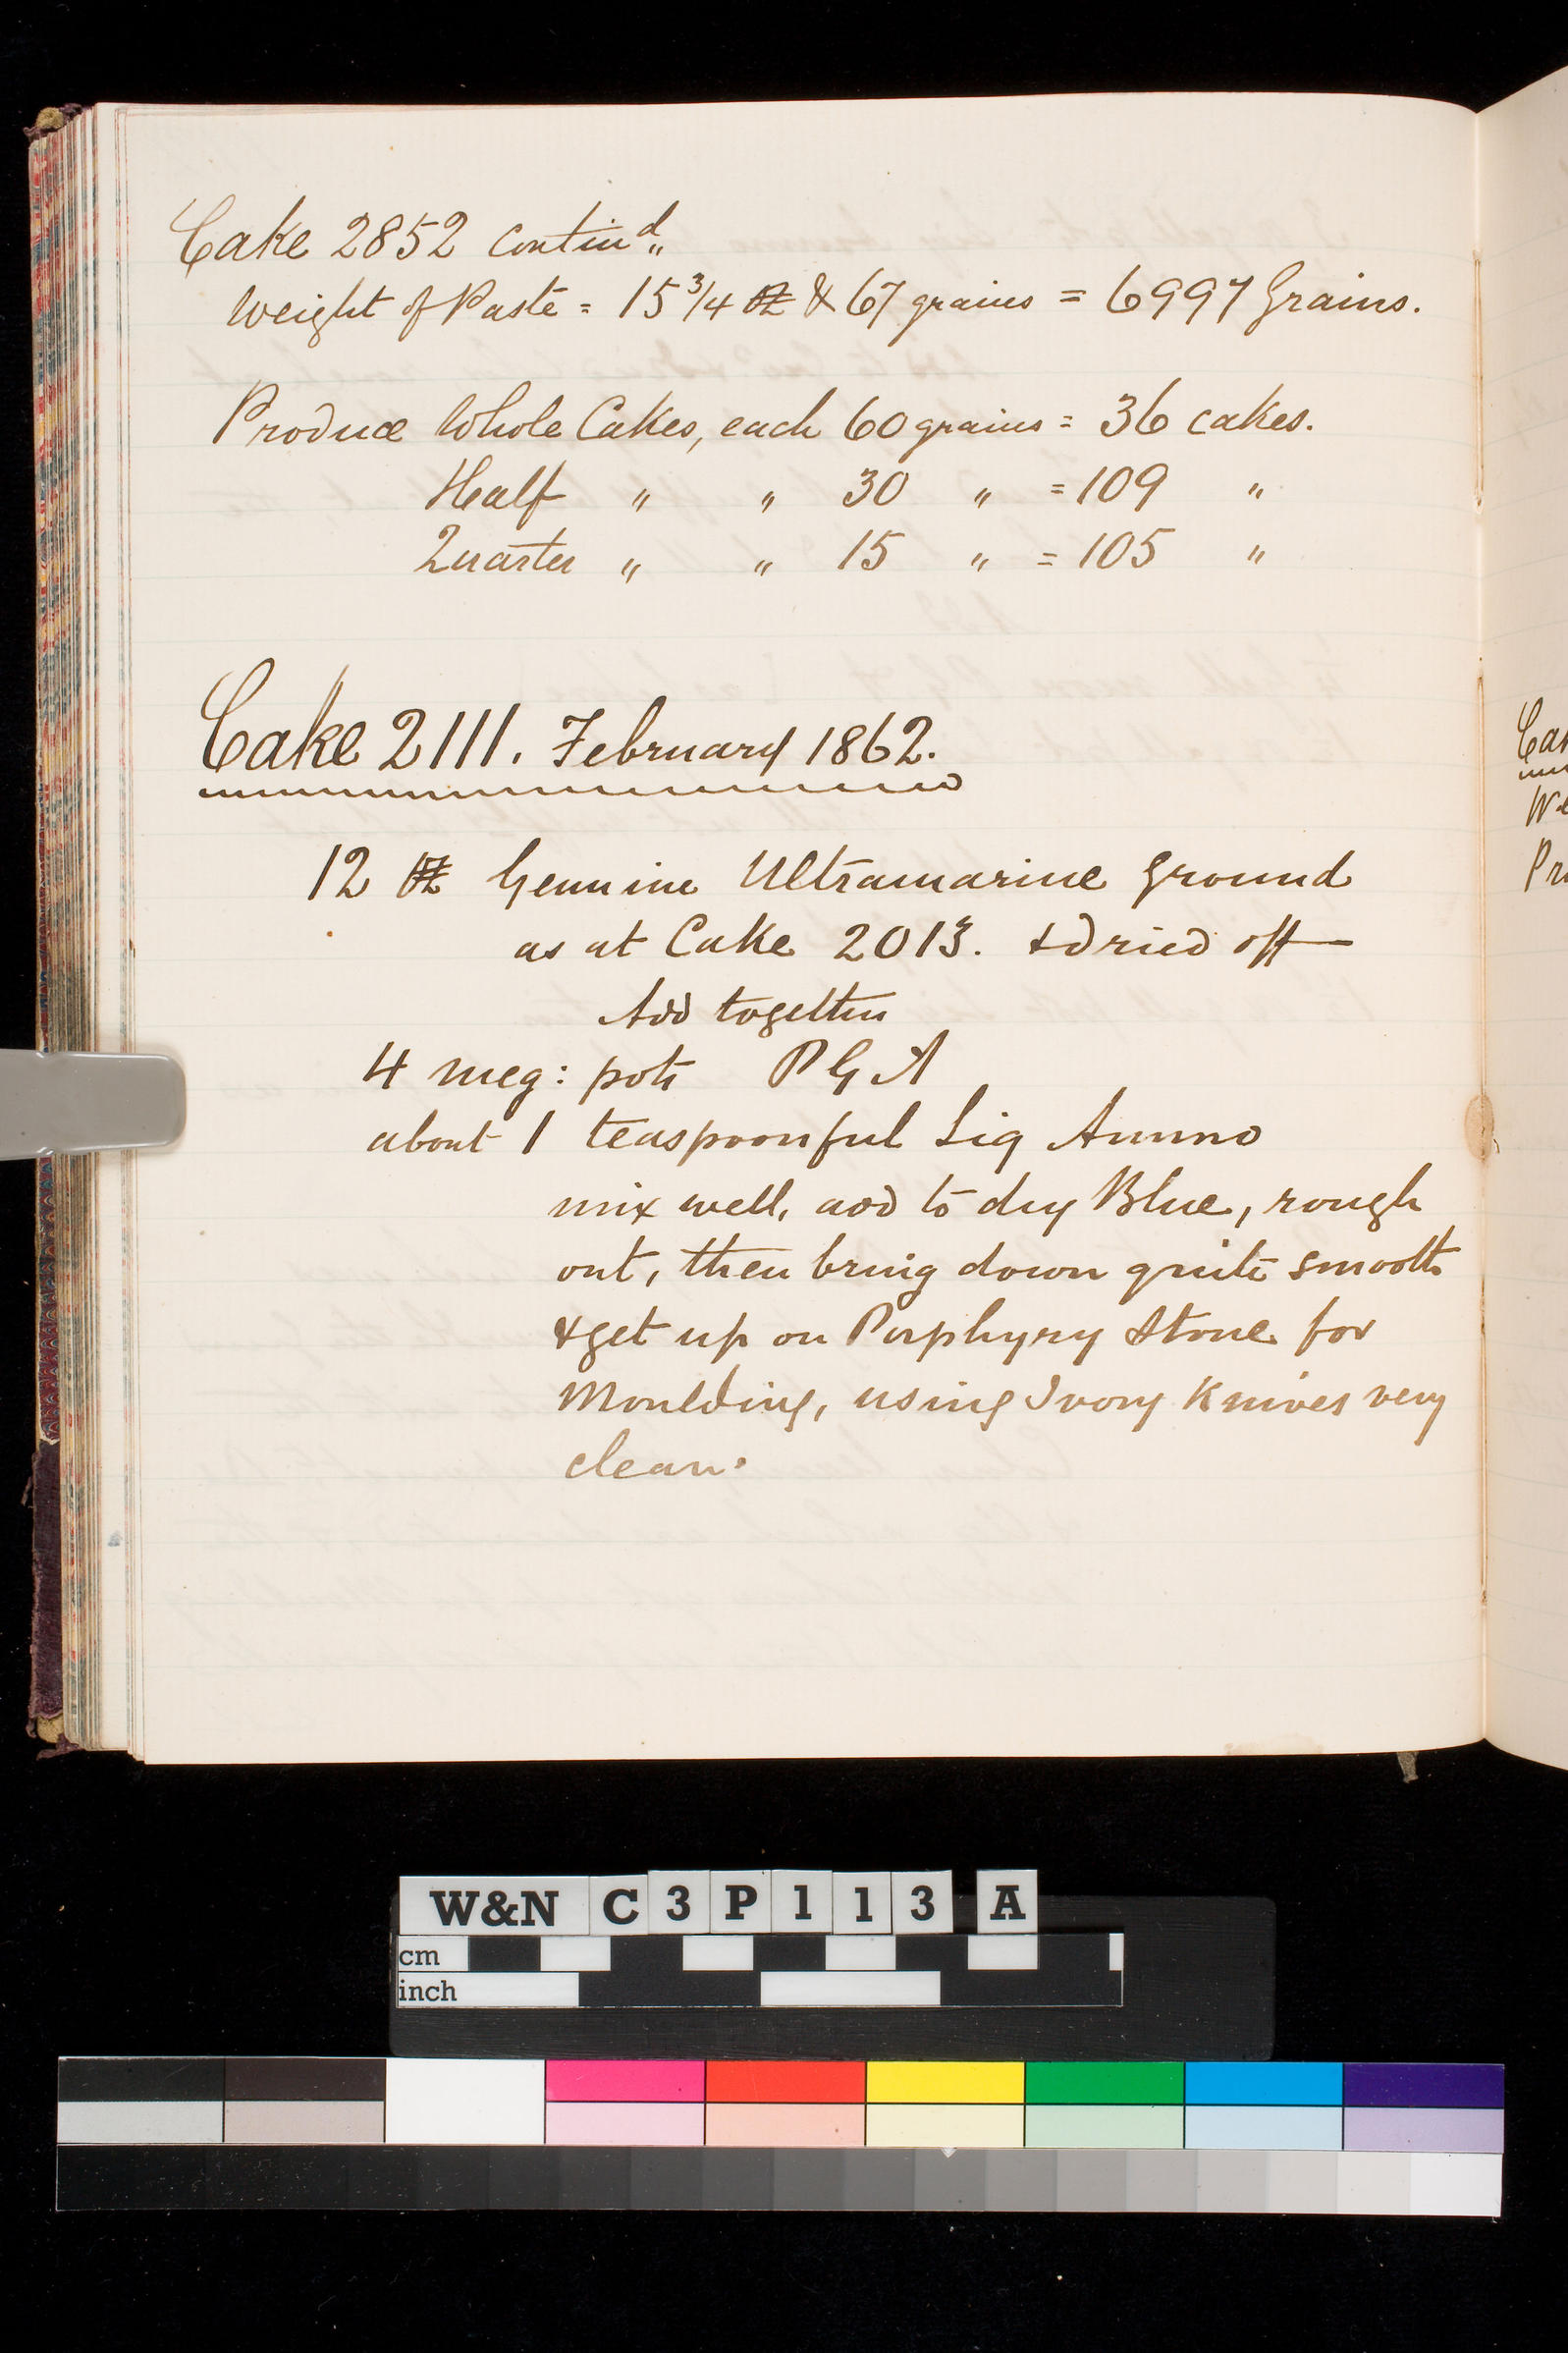 Cake 2852 contind„
Weight of Paste = 15 3/4 oz & 67 grains = 6997 Grains.
Produce Whole Cakes, each 60 grains = 36 cakes.
Half „ „ 30 „ = 109 „
Quarter „ „ 15 „ = 105 „
Cake 2111. February 1862.
12 oz Genuine Ultramarine ground
as at Cake 2013. & dried off
Add together
4 meg: pots P G A
about 1 teaspoonful Liq Ammo
mix well, add to dry Blue, rough
out, then bring down quite smooth
& get up on Porphyry Stone for
Moulding, using Ivory Knives very
clean.
Ca
We
Pr
W&N C3P113 A
cm
inch